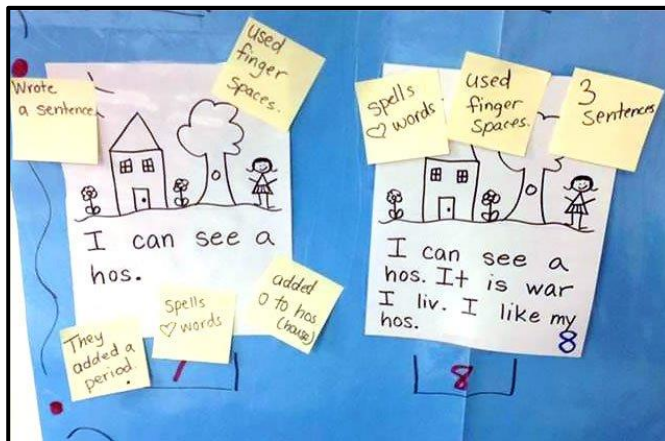 Wrote
a sentence
used
finger
spaces.
I can see a
hos.
They
added a
period.
Spells
♡ words
added
o to hos
(house)
7
Spells
♡ words
used
finger
Spaces.
3
Sentences
I can see a
hos. It is war
I liv. I like my
hos.
8
8